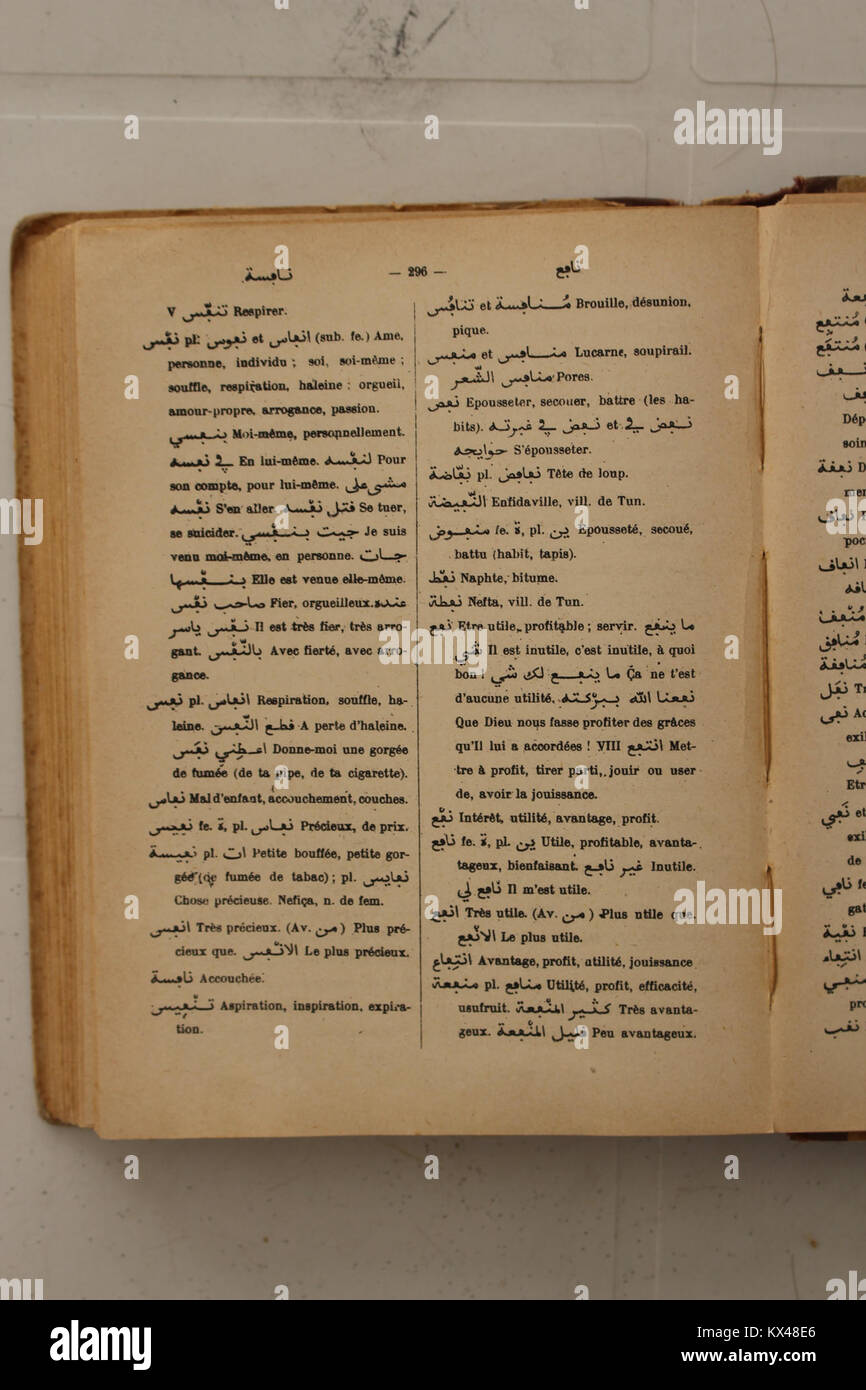 نافسة
— 296 —
نافع
V تنفّس Respirer.
نفْس pl. نفوس et انفاس (sub. fe.) Ame,
personne, individu ; soi, soi-même ;
souffle, respiration, haleine ; orgueil,
amour-propre, arrogance, passion.
بنفسي Moi-même, personnellement.
في نفسه En lui-même. لنفْسه Pour
son compte, pour lui-même. مشى على
نفْسه S'en aller. قتل نفْسه Se tuer,
se suicider. جيت بنفْسي Je suis
venu moi-même, en personne. جات
بنفْسها Elle est venue elle-même.
صاحب نفْس Fier, orgueilleux. عنده
نفْس ياسر Il est très fier, très arro-
gant. بالنّفْس Avec fierté, avec arro-
gance.
نفس pl. انفاس Respiration, souffle, ha-
leine. قطع النّفس A perte d'haleine.
اعطني نفس Donne-moi une gorgée
de fumée (de ta pipe, de ta cigarette).
نفاس Mal d'enfant, accouchement, couches.
نفيس fe. ة, pl. نفاس Précieux, de prix.
نفيسة pl. ات Petite bouffée, petite gor-
gée (de fumée de tabac) ; pl. نفايس
Chose précieuse. Nefiça, n. de fem.
انفس Très précieux. (Av. من) Plus pré-
cieux que. الانْفس Le plus précieux.
نافسة Accouchée.
تنْفيس Aspiration, inspiration, expira-
tion.
تنافُس et مُنافسة Brouille, désunion,
pique.
منفس et منافس Lucarne, soupirail.
منافس الشّعر Pores.
نفض Epousseter, secouer, battre (les ha-
bits). نفض في et نفض في غبرته
حوايجه S'épousseter.
نفّاضة pl. نفافض Tête de loup.
النّفيضة Enfidaville, vill. de Tun.
منفوض fe. ة, pl. ين Epousseté, secoué,
battu (habit, tapis).
نفْط Naphte, bitume.
نفطة Nefta, vill. de Tun.
نفع Etre utile, profitable ; servir. ما ينفع
شي Il est inutile, c'est inutile, à quoi
bon ! ما ينفع لك شي Ça ne t'est
d'aucune utilité. نفعنا الله ببركته
Que Dieu nous fasse profiter des grâces
qu'Il lui a accordées ! VIII انتفع Met-
tre à profit, tirer parti, jouir ou user
de, avoir la jouissance.
نفْع Intérêt, utilité, avantage, profit.
نافع fe. ة, pl. ين Utile, profitable, avanta-
tageux, bienfaisant. غير نافع Inutile.
نافع لي Il m'est utile.
انفع Très utile. (Av. من) Plus utile que.
الانْفع Le plus utile.
انتفاع Avantage, profit, utilité, jouissance
منفعة pl. منافع Utilité, profit, efficacité,
usufruit. كثير المنْفعة Très avanta-
geux. قليل المنْفعة Peu avantageux.
مُنتفِع
مُنتفَع
Dép
soin
نفقة D
men
poc
انفاق
مُنْفق
مُنافق
مُنافقة
نفل Tr
نفى Ac
exil
Etr
نفْي et
exi
de
نافي fe
gat
نفْية
انتفاء
منفي
pro
نقب
alamy
a
Image ID: KX48E6
www.alamy.com